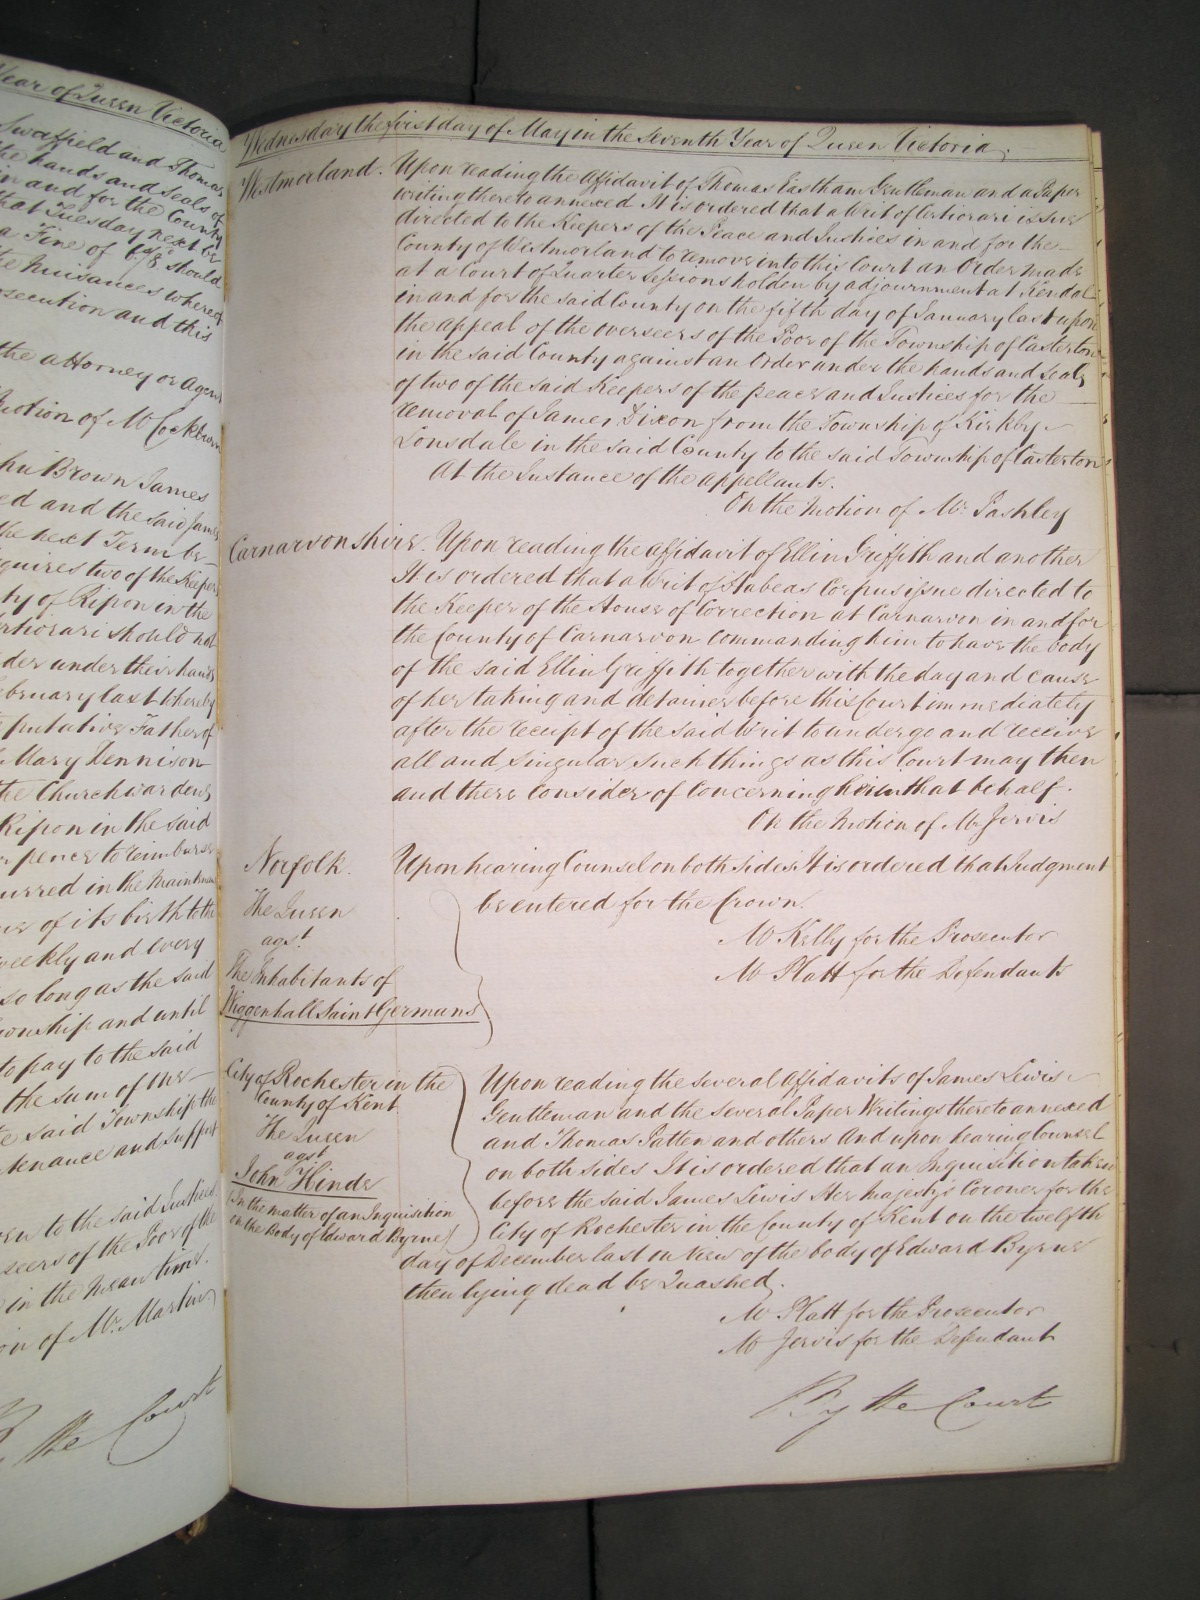 Year of Queen Victoria
Swaffield and Thomas
the hands and seals of
in and for the County
that Tuesday next be
a Fine of should
the Nuisances whereof
prosecution and this
the attorney or agent
Motion of Mr Cockburn
Brown James
ed and the said James
the next Term be
quires two of the Keepers
ty of Ripon in the
ertiorari should not
der under their hands
ebruary last whereby
putative Father of
Mary Dennison
the Churchwardens
Ripon in the said
pence to reimburse
urred in the maintenance
of its birth to the
weekly and every
so long as the said
ownship and until
to pay to the said
the sum of one
said Township the
tenance and support
to the said Justices
seers of the Poor of the
in the mean time.
on of Mr. Martin
By the Court
Wednesday the first day of May in the Seventh Year of Queen Victoria.
Westmorland. Upon reading the Affidavit of Thomas Eastham Gentleman and a Paper
writing thereto annexed It is ordered that a Writ of Certiorari issue
directed to the Keepers of the Peace and Justices in and for the
County of Westmorland to remove into this Court an Order made
at a Court of Quarter Sessions holden by adjournment at Kendal
in and for the said County on the fifth day of January last upon
the appeal of the overseers of the Poor of the Township of Casterton
in the said County against an Order under the hands and seals
of two of the said Keepers of the peace and Justices for the
removal of James Dixon from the Township of Kirkby
Lonsdale in the said County to the said Township of Casterton
At the Instance of the appellants.
On the Motion of Mr. Pashley
Carnarvonshire. Upon reading the affidavit of Ellin Griffith and another
It is ordered that a Writ of Habeas Corpus issue directed to
the Keeper of the House of Correction at Carnarvon in and for
the County of Carnarvon commanding him to have the body
of the said Ellin Griffith together with the day and cause
of her taking and detainer before this Court immediately
after the receipt of the said Writ to undergo and receive
all and singular such things as this Court may then
and there consider of concerning her in that behalf.
On the Motion of Mr Jervis
Norfolk. Upon hearing Counsel on both sides It is ordered that Judgment
be entered for the Crown.
The Queen
agst.
The Inhabitants of
Wiggenhall Saint Germans
Mr Kelly for the Prosecutor
Mr Platt for the Defendants
City of Rochester in the
County of Kent
The Queen
agst
John Hinde
In the matter of an Inquisition
on the Body of Edward Byrne
Upon reading the several Affidavits of James Lewis
Gentleman and the several Paper Writings thereto annexed
and Thomas Patten and others And upon hearing Counsel
on both sides It is ordered that an Inquisition taken
before the said James Lewis Her Majesty's Coroner for the
City of Rochester in the County of Kent on the twelfth
day of December last on view of the body of Edward Byrne
then lying dead be Quashed.
Mr Platt for the Prosecutor
Mr Jervis for the Defendant
By the Court